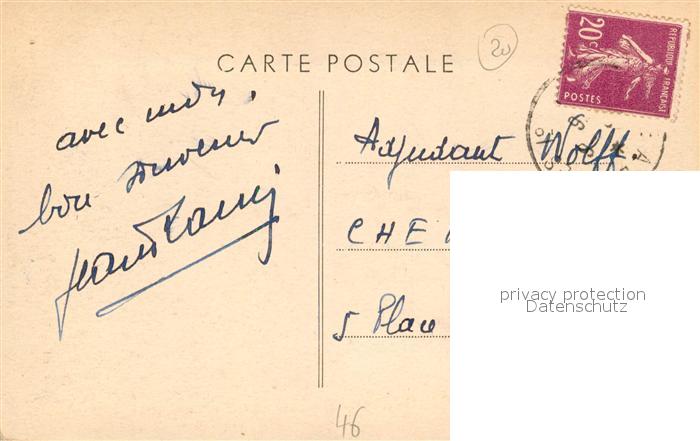 CARTE POSTALE
20
20c
RÉPUBLIQUE FRANÇAISE
POSTES
avec mon
bon souvenir
Adjudant Wolff.
CHE
5 Place
privacy protection
Datenschutz
46